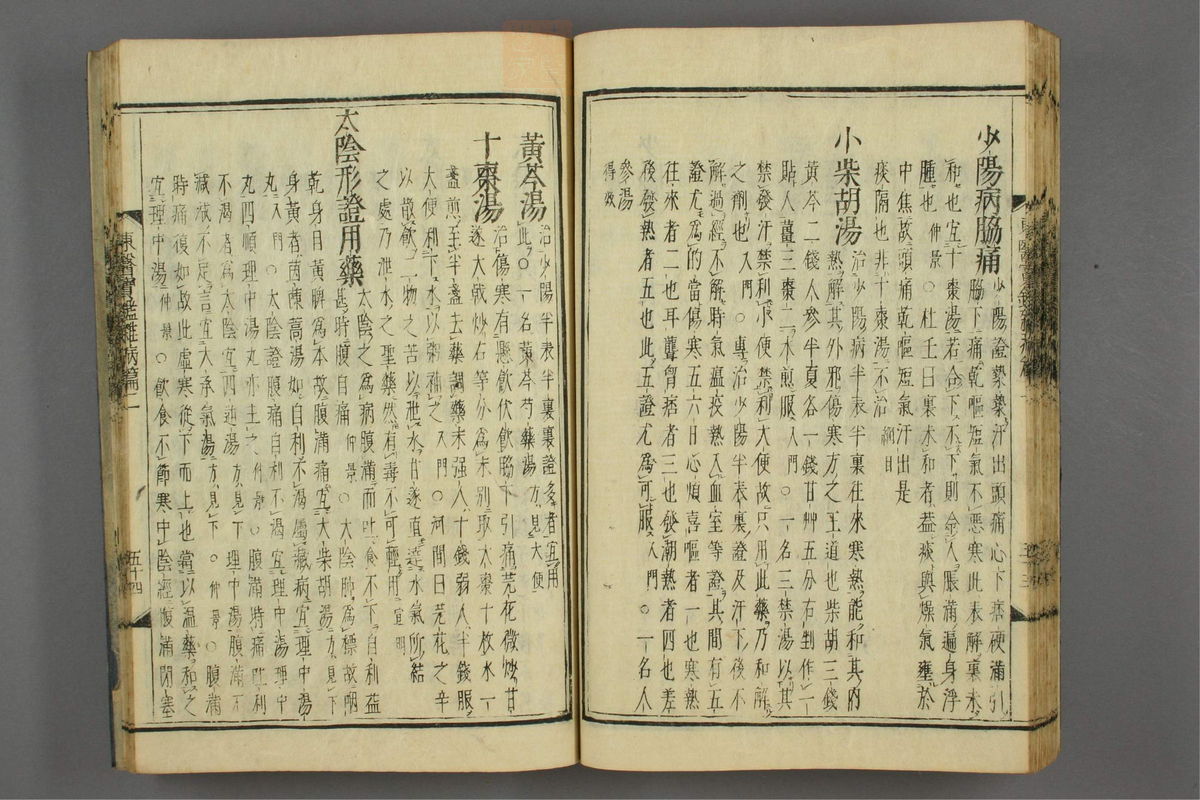 少陽病脇痛 少陽證漐漐汗出頭痛心下痞硬滿引
脇下痛乾嘔短氣不惡寒此表解裏未
和也宜十棗湯若合下不下則令人脹滿遍身浮
腫也 仲景 ○杜壬曰裏未和者盖痰與燥氣壅於
中焦故頭痛乾嘔短氣汗出是
痰隔也非十棗湯不治 綱目
小柴胡湯 治少陽病半表半裏往來寒熱能和其內
熱解其外邪傷寒方之王道也柴胡三錢
黃芩二錢人參半夏各一錢甘艸五分右剉作一
貼入薑三棗二水煎服 入門 ○一名三禁湯以其
禁發汗禁利小便禁利大便故只用此藥乃和解
之劑也 入門 ○專治少陽半表裏證及汗下後不
解過經不解時氣瘟疫熱入血室等證其間有五
證尤爲的當傷寒五六日心煩喜嘔者一也寒熱
往來者二也耳聾胷痞者三也發潮熱者四也差
後發熱者五也此五證尤爲可服 入門 ○一名人
參湯
得效
黃芩湯 治少陽半表半裏裏證多者宜用
此○一名黃芩芍藥湯 方見大便
十棗湯 治傷寒有懸飲伏飲脇下引痛芫花微炒甘
遂大戟炒右等分爲末別取大棗十枚水一
盞煎至半盞去藥調藥末强人一錢弱人半錢服
大便利下水以粥補之 入門 ○河間曰芫花之辛
以散飲二物之苦以泄水甘遂直達水氣所結
之處乃泄水之聖藥然有毒不可輕用 宣明
太陰形證用藥 太陰之爲病腹滿而吐食不下自利益
甚時腹自痛 仲景 ○太陰肺爲標故咽
乾身目黃脾爲本故腹滿痛宜大柴胡湯 方見下
身黃者茵蔯蒿湯如自利不渴屬藏病宜理中湯
丸 入門 ○太陰證腹痛自利不渴宜理中湯理中
丸四順理中湯丸亦主之 仲景 ○腹滿時痛吐利
不渴者爲太陰宜四逆湯 方見下 理中湯腹滿不
減減不足言宜大承氣湯 方見下 ○ 仲景 ○腹滿
時痛復如故此虛寒從下而上也當以溫藥和之
宜理中湯 仲景 ○飲食不節寒中陰經腹滿閉塞
東醫寶鑑雜病篇二
五十四